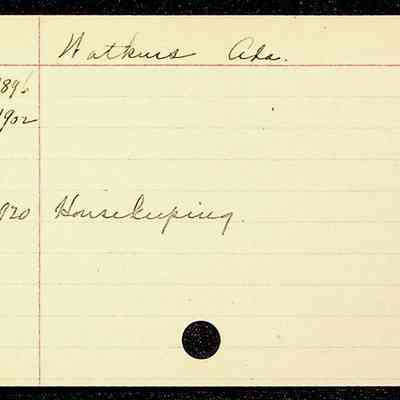 Watkins Ada.
1896
1902
1920 Housekeeping.